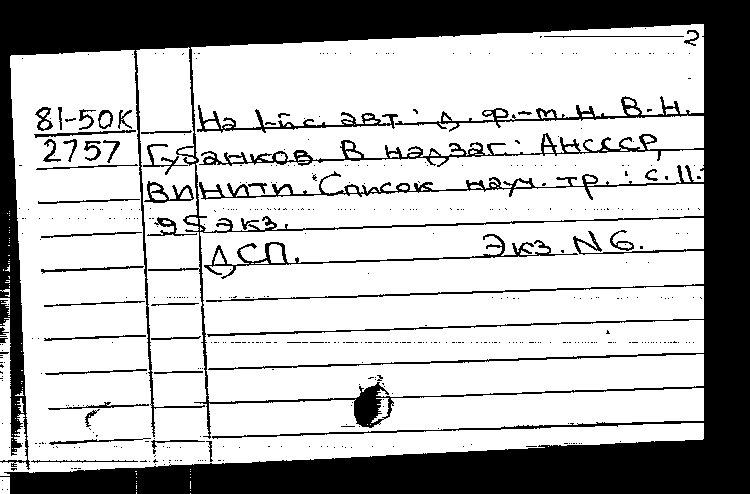 2
81-50К На 1-й с. авт.: д. ф.-т. н. В. Н.
2757 Губанков. В надзаг: АНСССР,
ВИНИТИ. Список науч. тр.: с. 11.
95 экз.
ДСП. Экз. N 6.